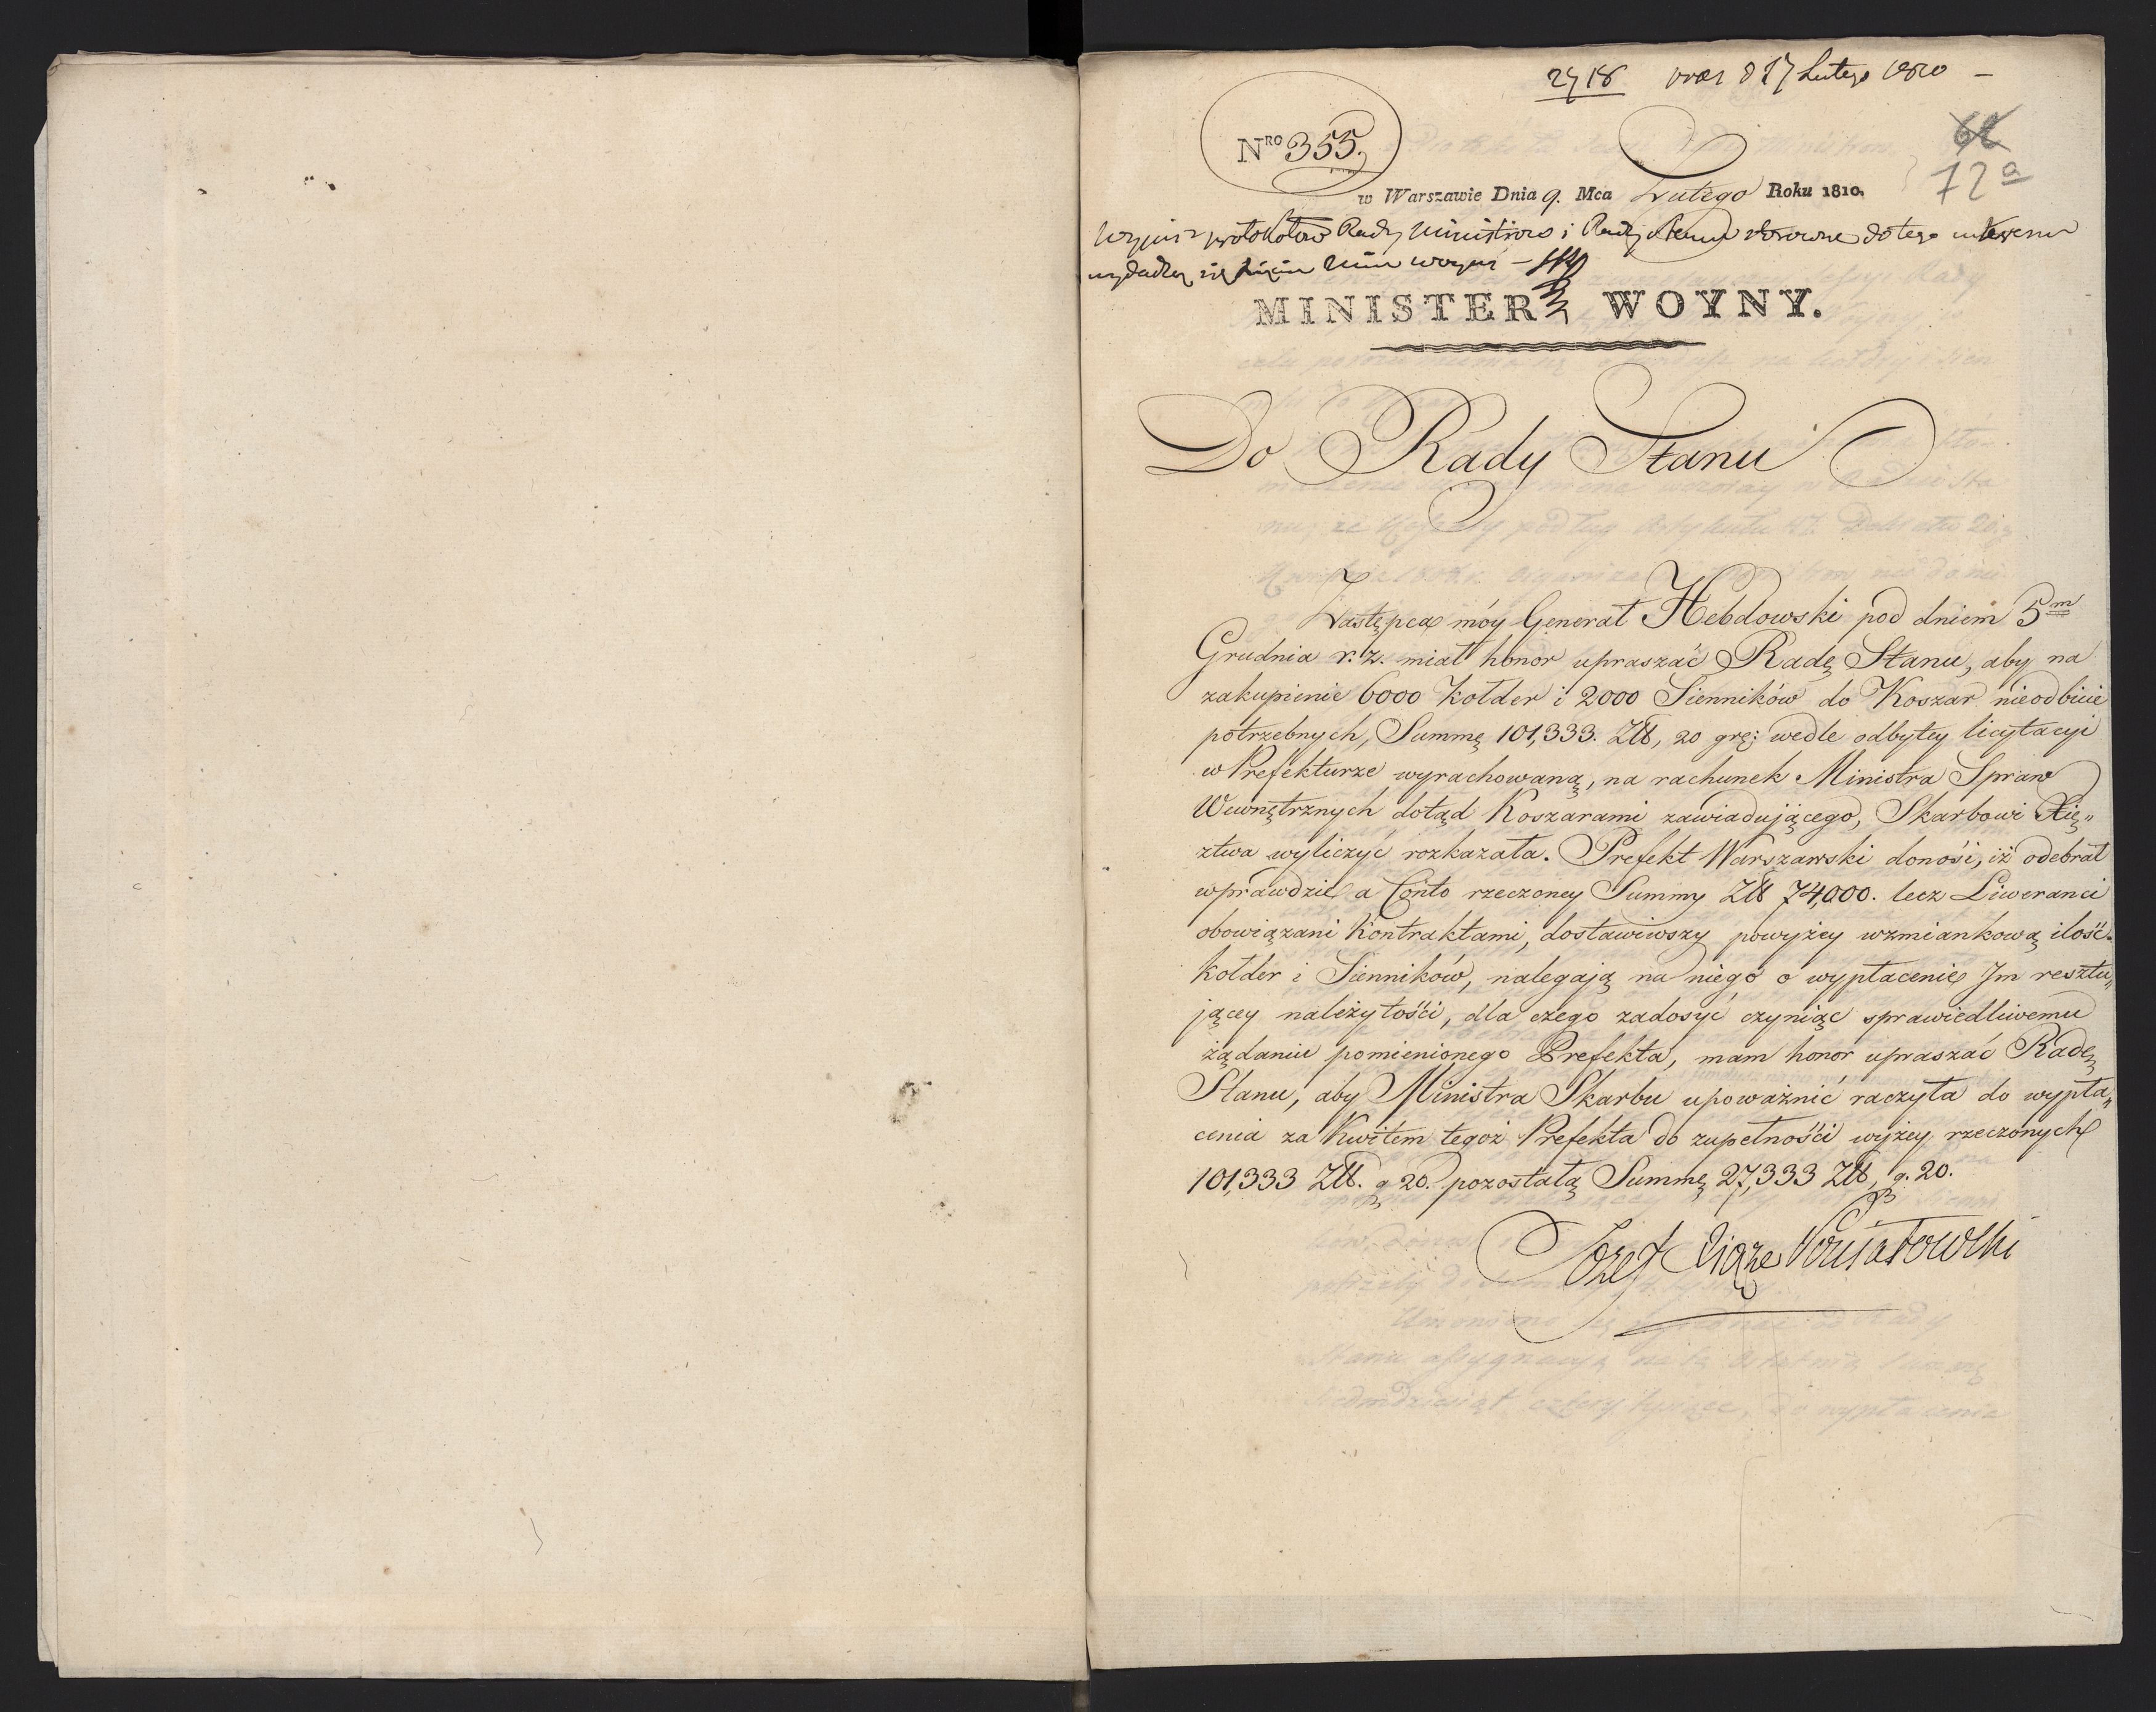 2718 praes d 17 Lutego 1810 —
Nro 355.
62
72a
w Warszawie Dnia 9. Mca Lutego Roku 1810.
protokołow Rady Ministrow i Rady Stanu do tego
MINISTER WOYNY.
Do Rady Stanu
Zastępca móy Generał Hebdowski pod dniem 5m
Grudnia r. z. miał honor upraszać Radę Stanu, aby na
zakupienie 6000 kołder i 2000 Sienników do Koszar nieodbicie
potrzebnych, Summę 101,333. Złł, 20 gr: wedle odbytey licytacyi
w Prefekturze wyrachowaną, na rachunek Ministra Spraw
Wewnętrznych dotąd Koszarami zawiadującego, Skarbowi Xię„
ztwa wyliczyć rozkazała. Prefekt Warszawski donosi, iż odebrał
wprawdzie a Conto rzeczoney Summy Złł 74,000. lecz Liweranci
obowiązani Kontraktami, dostawiwszy powyżey wzmiankową ilość
kołder i Sienników, nalegają na niego o wypłacenie Im resztu„
jącey należytości, dla czego zadosyć czyniąc sprawiedliwemu
żądaniu pomienionego Prefekta, mam honor upraszać Radę
Stanu, aby Ministra Skarbu upoważnić raczyła do wypła„
cenia za Kwitem tegoż Prefekta do zupełności wyżey rzeczonych
101,333 Złł. g 20. pozostałą Summę 27,333 Złł, g. 20.
Jozef Xiąże Poniatowski